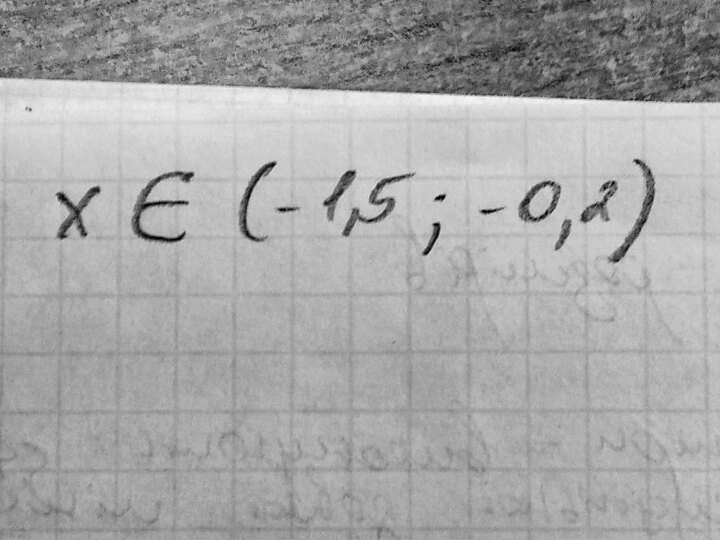 x ∈ (-1,5; -0,2)